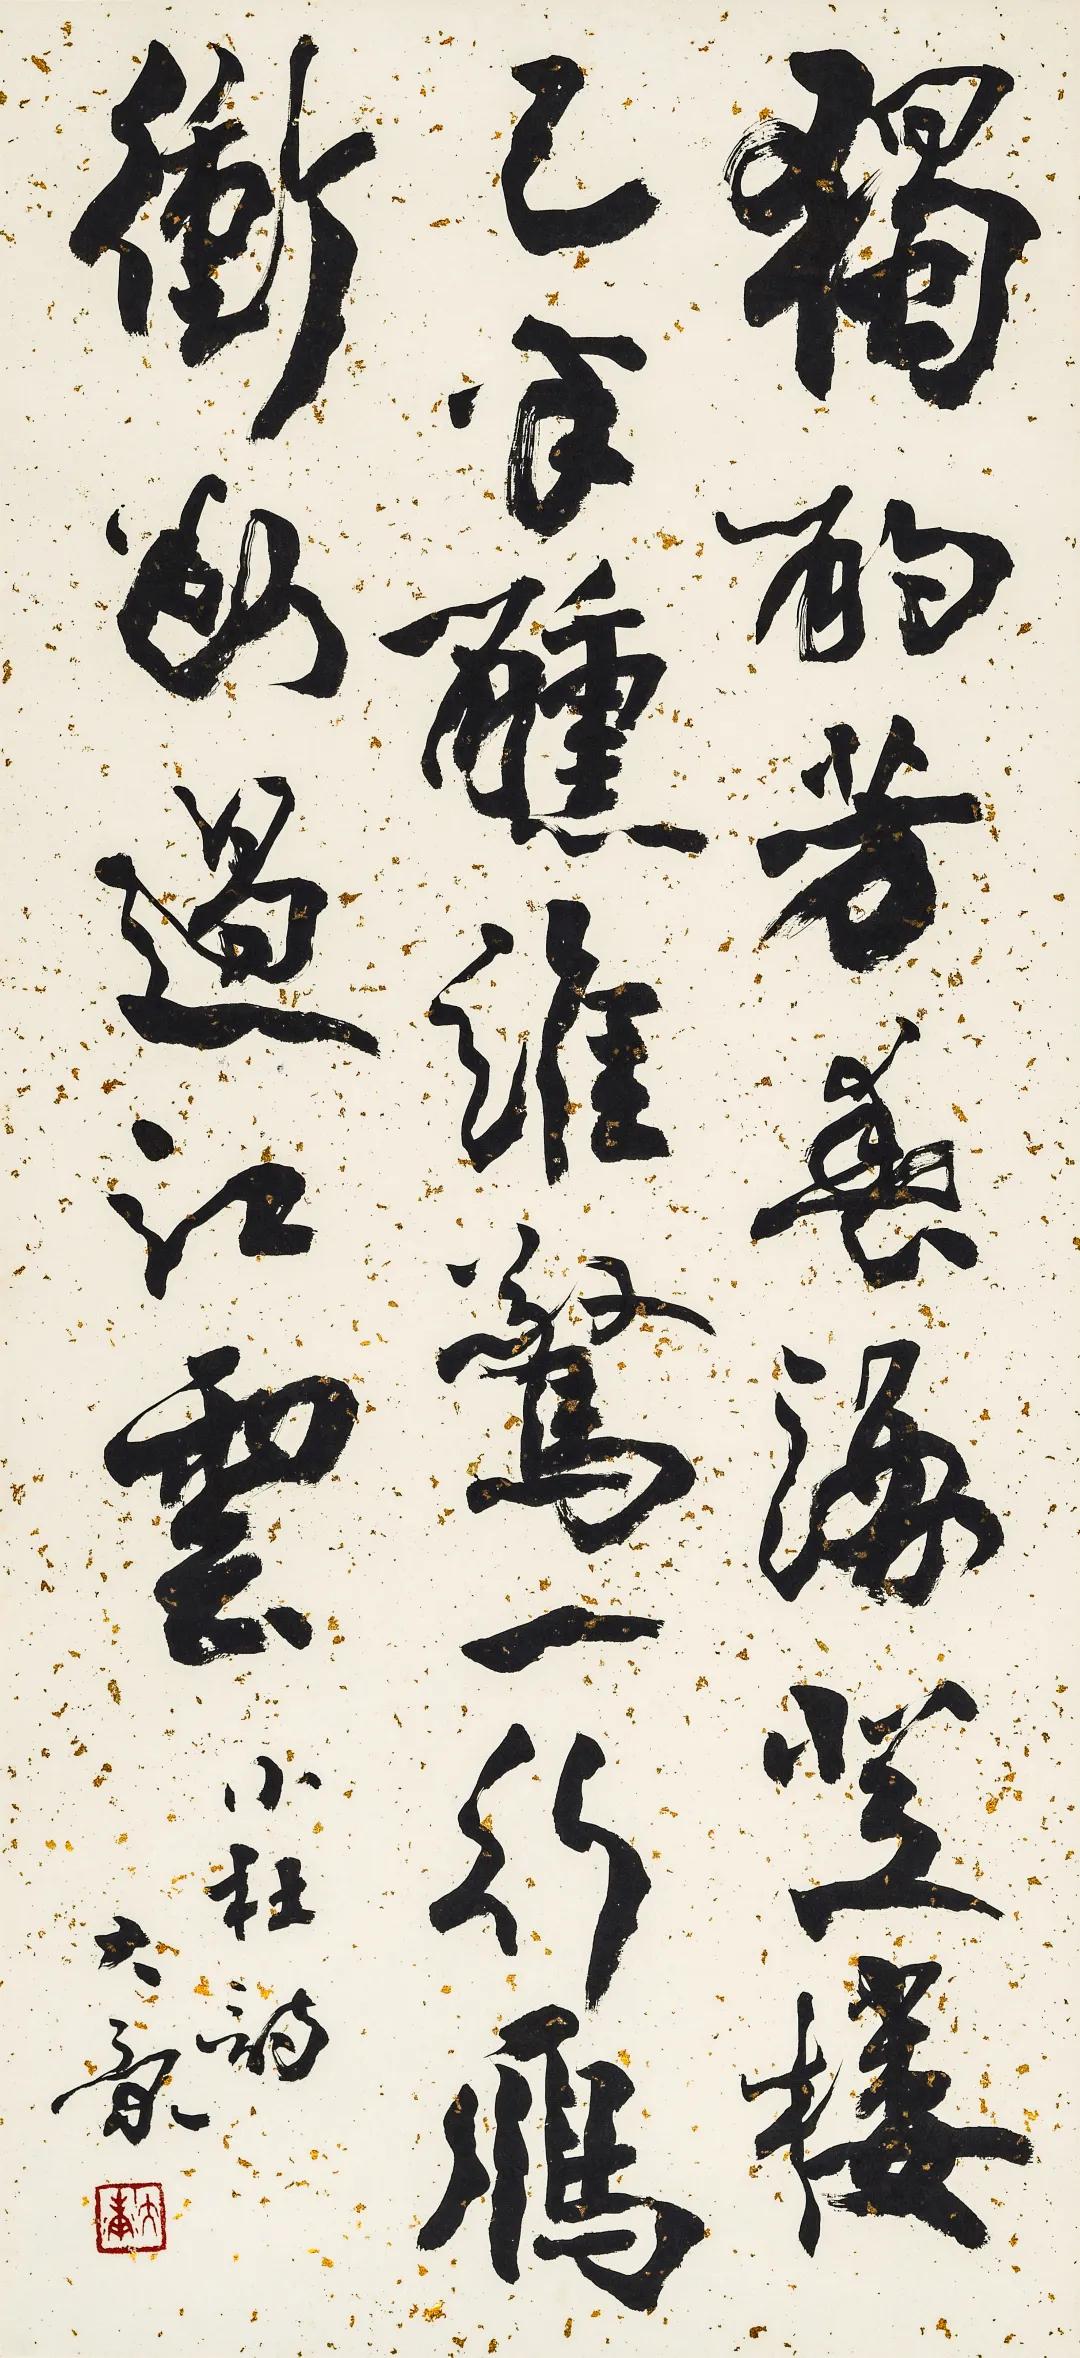 獨酌芳春酒登樓
已半醺誰驚一行鴈
衝斷過江雲
小杜詩
大